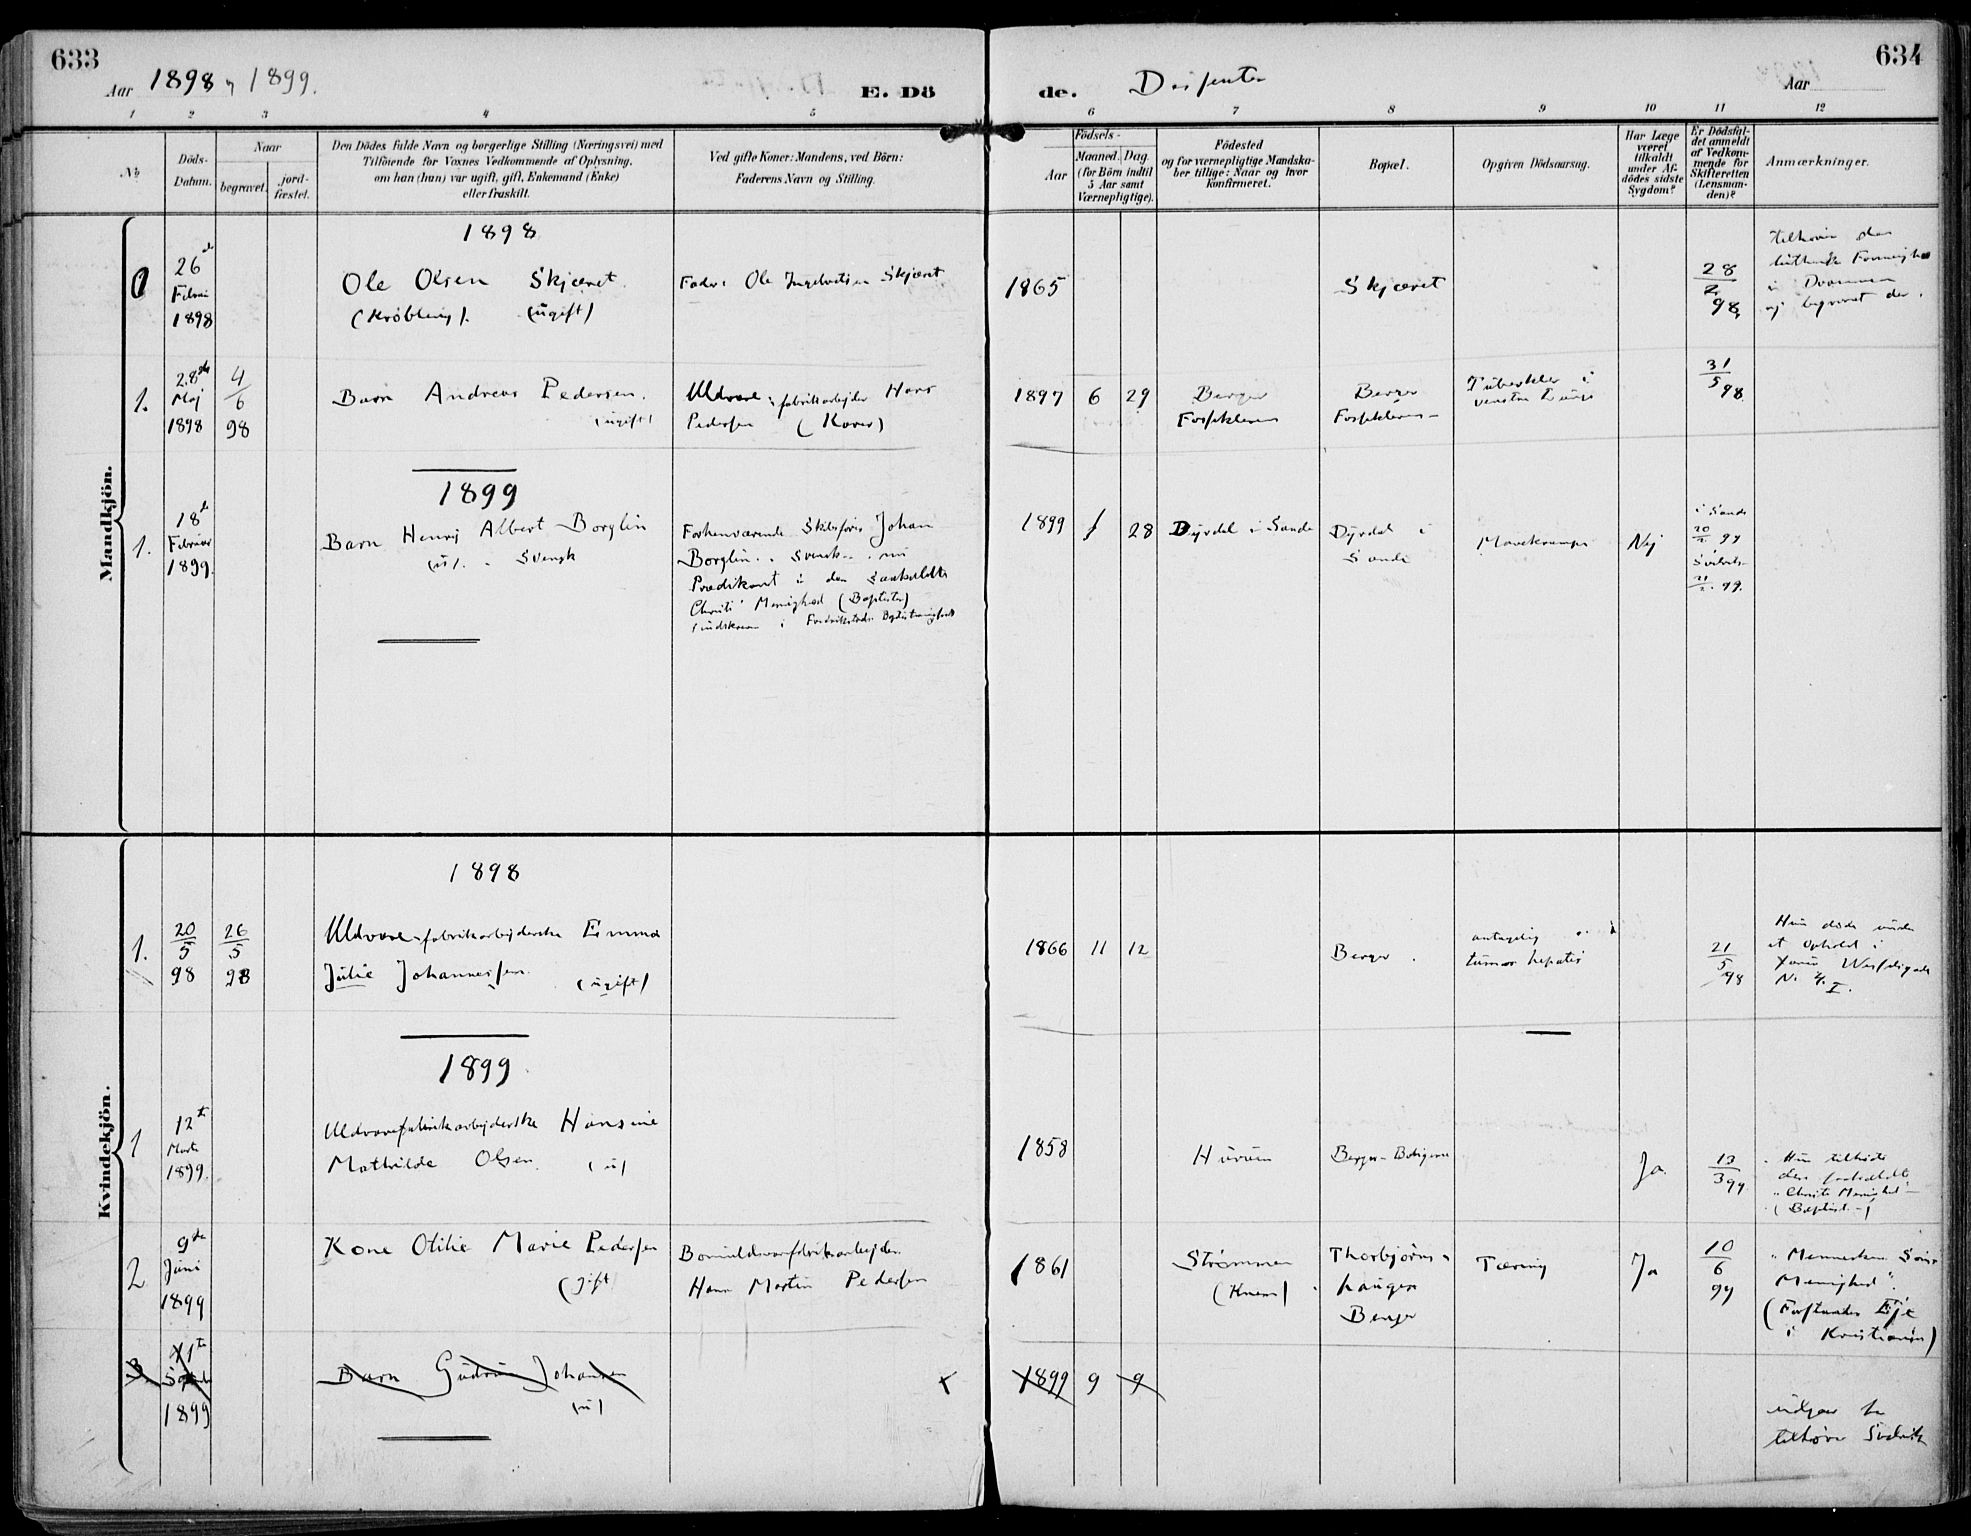 633
Aar 1898 1899.
E. Dö
de.
Disenter
634
Aar
1 2 3 4 5
6 7 8 9 10 11 12
No
Döds-
Datum.
Naar
begravet.
jord-
fæstet.
Den Dödes fulde Navn og borgerlige Stilling (Næringsvei) med
Tilföiende for Voxnes Vedkommende af Oplysning,
om han (hun) var ugift, gift, Enkemand (Enke)
eller fraskilt.
Ved gifte Koner: Mandens, ved Börn:
Faderens Navn og Stilling.
Födsels-
Aar
Maaned. Dag.
(for Börn indtil
5 Aar samt
Værnepligtige).
Födested
og for værnepligtige Mandska-
ber tillige: Naar og hvor
konfirmeret.
Bopæl.
Opgiven Dödsaarsag.
Har Læge
været
tilkaldt
under Af-
dödes sidste
Sygdom?
Er Dödsfal-
det anmeldt
af Vedkom-
mende for
Skifteretten
(Lensman-
den)?
Anmærkninger.
Mandkjön.
1898
0
26
1898
Ole Olsen Skjæret
(ugift)
Fader: Ole Skjæret
1865
Skjæret
28
2
98
i Drammen
og begravet der.
1.
28de
Maj
1898
4
6
98
Barn Andreas Pedersen.
(ugift)
Uldvarefabrikarbejder Hans
Pedersen
1897 6 29
Berger
Fossekleven
Berger
Fossekleven
Tuberkler i
venstre Lunge
31
5
98
1899
1.
18
Februar
1899.
Barn Henry Albert Borglin
(u). Svensk
Forhenværende Skibsfører Johan
Borglin. Svensk nu
Prædikant i den
Christi Menighed (Baptister)
i Fredrikstads
1899 1 28
Dyrdal i Sande
Dyrdal i
Sande
Mavekrampe
Nej
i Sande
20
2 99
21
2 99.
Kvindekjön.
1898
1.
20
5
98
26
5
98
Uldvare-fabrikarbejderske Emma
Julie Johannessen
(ugift)
1866 11 12
Berger
antagelig
tumor hepatis
21
5
98
Hun døde under
et Ophold i
1899
1
12te
Marts
1899.
Uldvarefabrikarbejderske Hansine
Mathilde Olsen. (u)
1858
Hurum
Berger-Boligerne
Ja.
13
3 99
Hun tilhørte
Christi Menighed
(Baptist-)
2
9de
Juni
1899
Kone Otilie Marie Pedersen
(gift)
Bomuldsvarefabrikarbejder
Hans Martin Pedersen
1861
Strømmen
Thorbjørns-
haugen
Berger
Tæring
Ja
10
6
99
Menneskens Søns
Menighed"
(Forstander
i Kristiania)
3
1899
Barn Gudrun Johansen
(u)
1899 9 9
udgaar da
tilhører